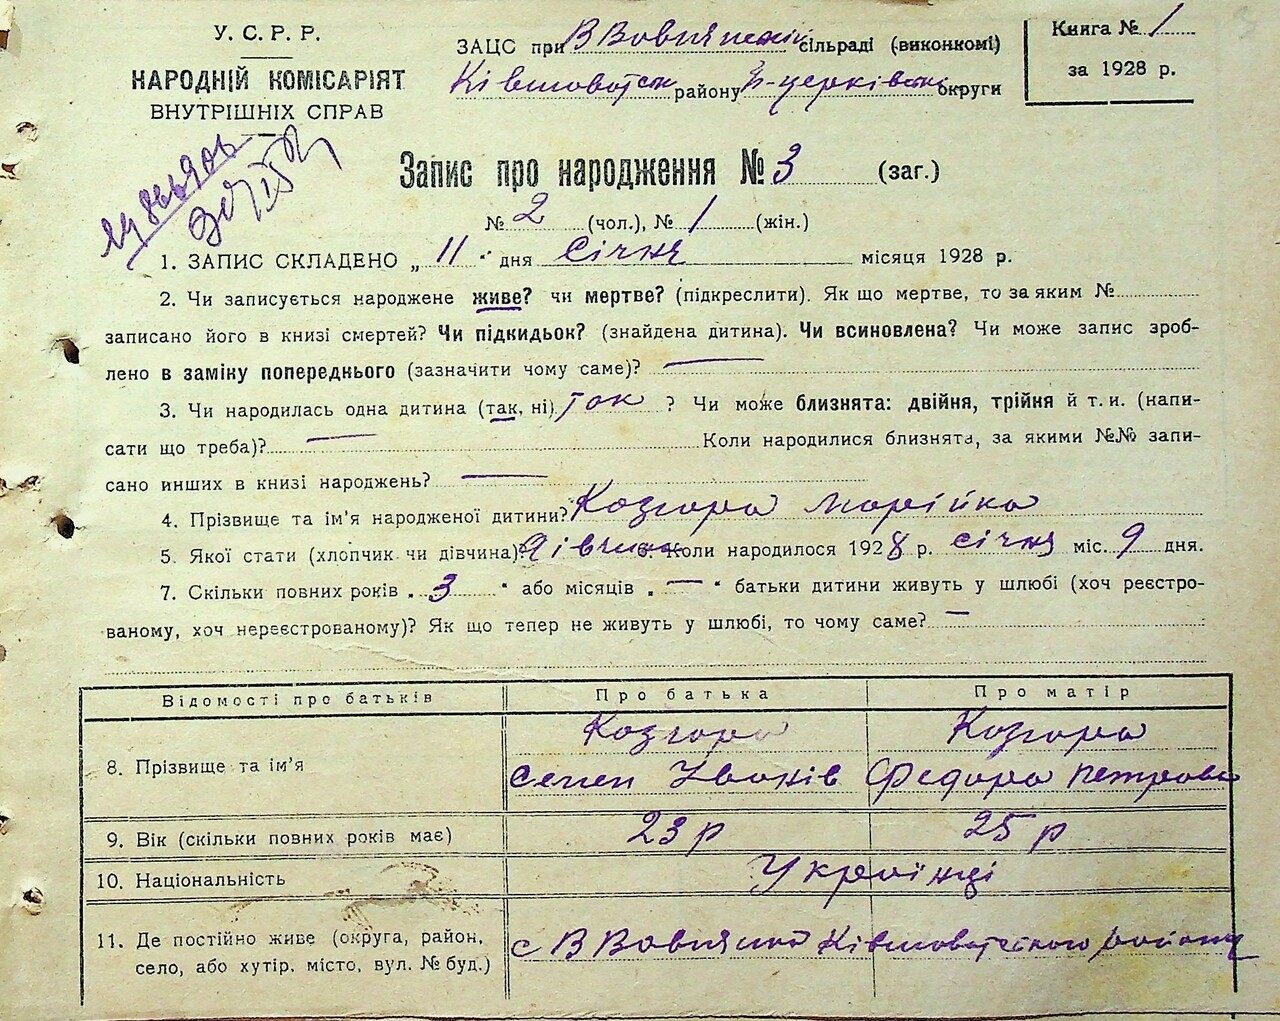 У. С. Р. Р.
НАРОДНІЙ КОМІСАРІЯТ
ВНУТРІШНІХ СПРАВ
ЗАЦС при В Вовнянській сільраді (виконкомі)
Ківшоватськ району Б-церківськ округи
Книга № 1
за 1928 р.
Запис про народження № 3 (заг.)
№ 2 (чол.), № 1 (жін.)
1. ЗАПИС СКЛАДЕНО „ 11 “ дня Січня місяця 1928 р.
2. Чи записується народжене живе? чи мертве? (підкреслити). Як що мертве, то за яким №
записано його в книзі смертей? Чи підкидьок? (знайдена дитина). Чи всиновлена? Чи може запис зроб-
лено в заміку попереднього (зазначити чому саме)? —
3. Чи народилась одна дитина (так, ні) так ? Чи може близнята: двійня, трійня й т. и. (напи-
сати що треба)? — Коли народилися близнята, за якими №№ запи-
сано инших в книзі народжень? —
4. Прізвище та ім'я народженої дитини? Козюра Марійка
5. Якої стати (хлопчик чи дівчина)? Дівчина 6. Коли народилося 1928 р. січня міс. 9 дня.
7. Скільки повних років „ 3 “ або місяців „ — “ батьки дитини живуть у шлюбі (хоч реєстро-
ваному, хоч нереєстрованому)? Як що тепер не живуть у шлюбі, то чому саме? —
Відомості про батьків Про батька Про матір
8. Прізвище та ім'я Козюра Семен Іванів Козюра Федора Петрова
9. Вік (скільки повних років має) 23 р 25 р
10. Національність Українці
11. Де постійно живе (округа, район,
село, або хутір, місто, вул. № буд.) с В Вовнянка Ківшоватського району